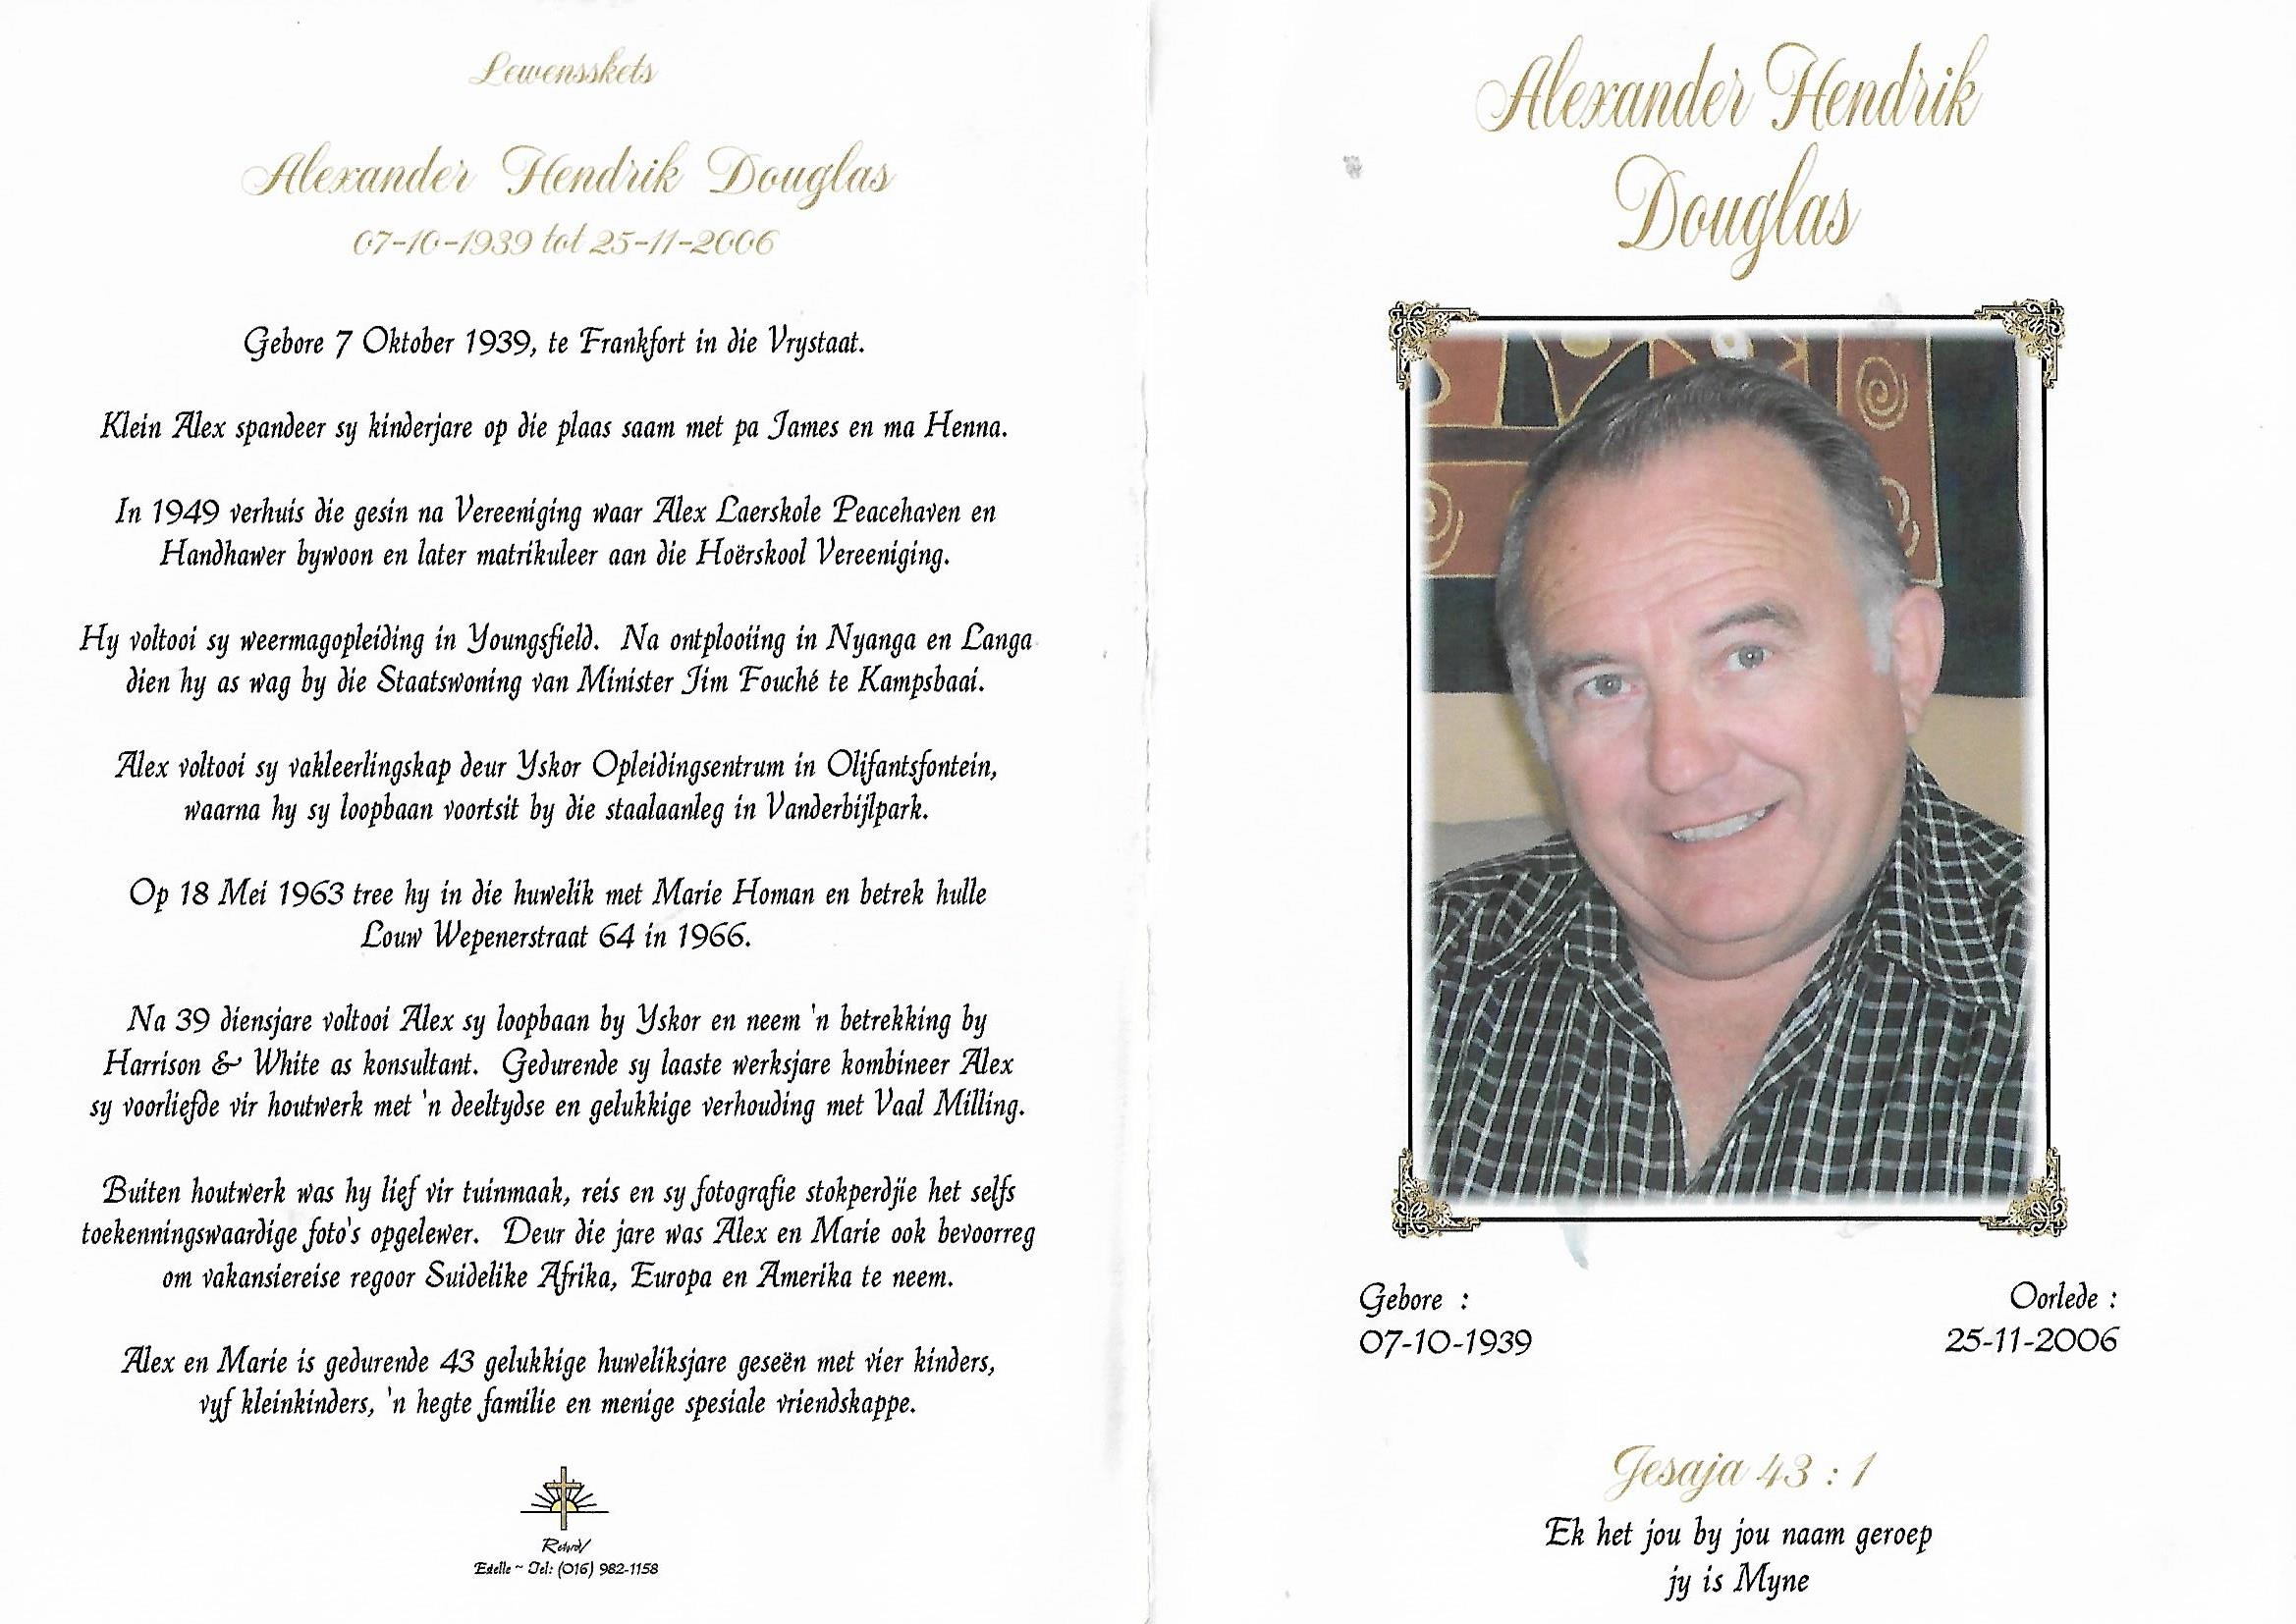 Lewensskets
Alexander Hendrik Douglas
07-10-1939 tot 25-11-2006
Gebore 7 Oktober 1939, te Frankfort in die Vrystaat.
Klein Alex spandeer sy kinderjare op die plaas saam met pa James en ma Henna.
In 1949 verhuis die gesin na Vereeniging waar Alex Laerskole Peacehaven en
Handhawer bywoon en later matrikuleer aan die Hoërskool Vereeniging.
Hy voltooi sy weermagopleiding in Youngsfield. Na ontplooiing in Nyanga en Langa
dien hy as wag by die Staatswoning van Minister Jim Fouché te Kampsbaai.
Alex voltooi sy vakleerlingskap deur Yskor Opleidingsentrum in Olifantsfontein,
waarna hy sy loopbaan voortsit by die staalaanleg in Vanderbijlpark.
Op 18 Mei 1963 tree hy in die huwelik met Marie Homan en betrek hulle
Louw Wepenerstraat 64 in 1966.
Na 39 diensjare voltooi Alex sy loopbaan by Yskor en neem 'n betrekking by
Harrison & White as konsultant. Gedurende sy laaste werksjare kombineer Alex
sy voorliefde vir houtwerk met 'n deeltydse en gelukkige verhouding met Vaal Milling.
Buiten houtwerk was hy lief vir tuinmaak, reis en sy fotografie stokperdjie het selfs
toekenningswaardige foto's opgelewer. Deur die jare was Alex en Marie ook bevoorreg
om vakansiereise regoor Suidelike Afrika, Europa en Amerika te neem.
Alex en Marie is gedurende 43 gelukkige huweliksjare geseën met vier kinders,
vyf kleinkinders, 'n hegte familie en menige spesiale vriendskappe.
Estelle ~ Tel: (016) 982-1158
Alexander Hendrik
Douglas
Gebore :
07-10-1939
Oorlede :
25-11-2006
Jesaja 43 : 1
Ek het jou by jou naam geroep
jy is Myne